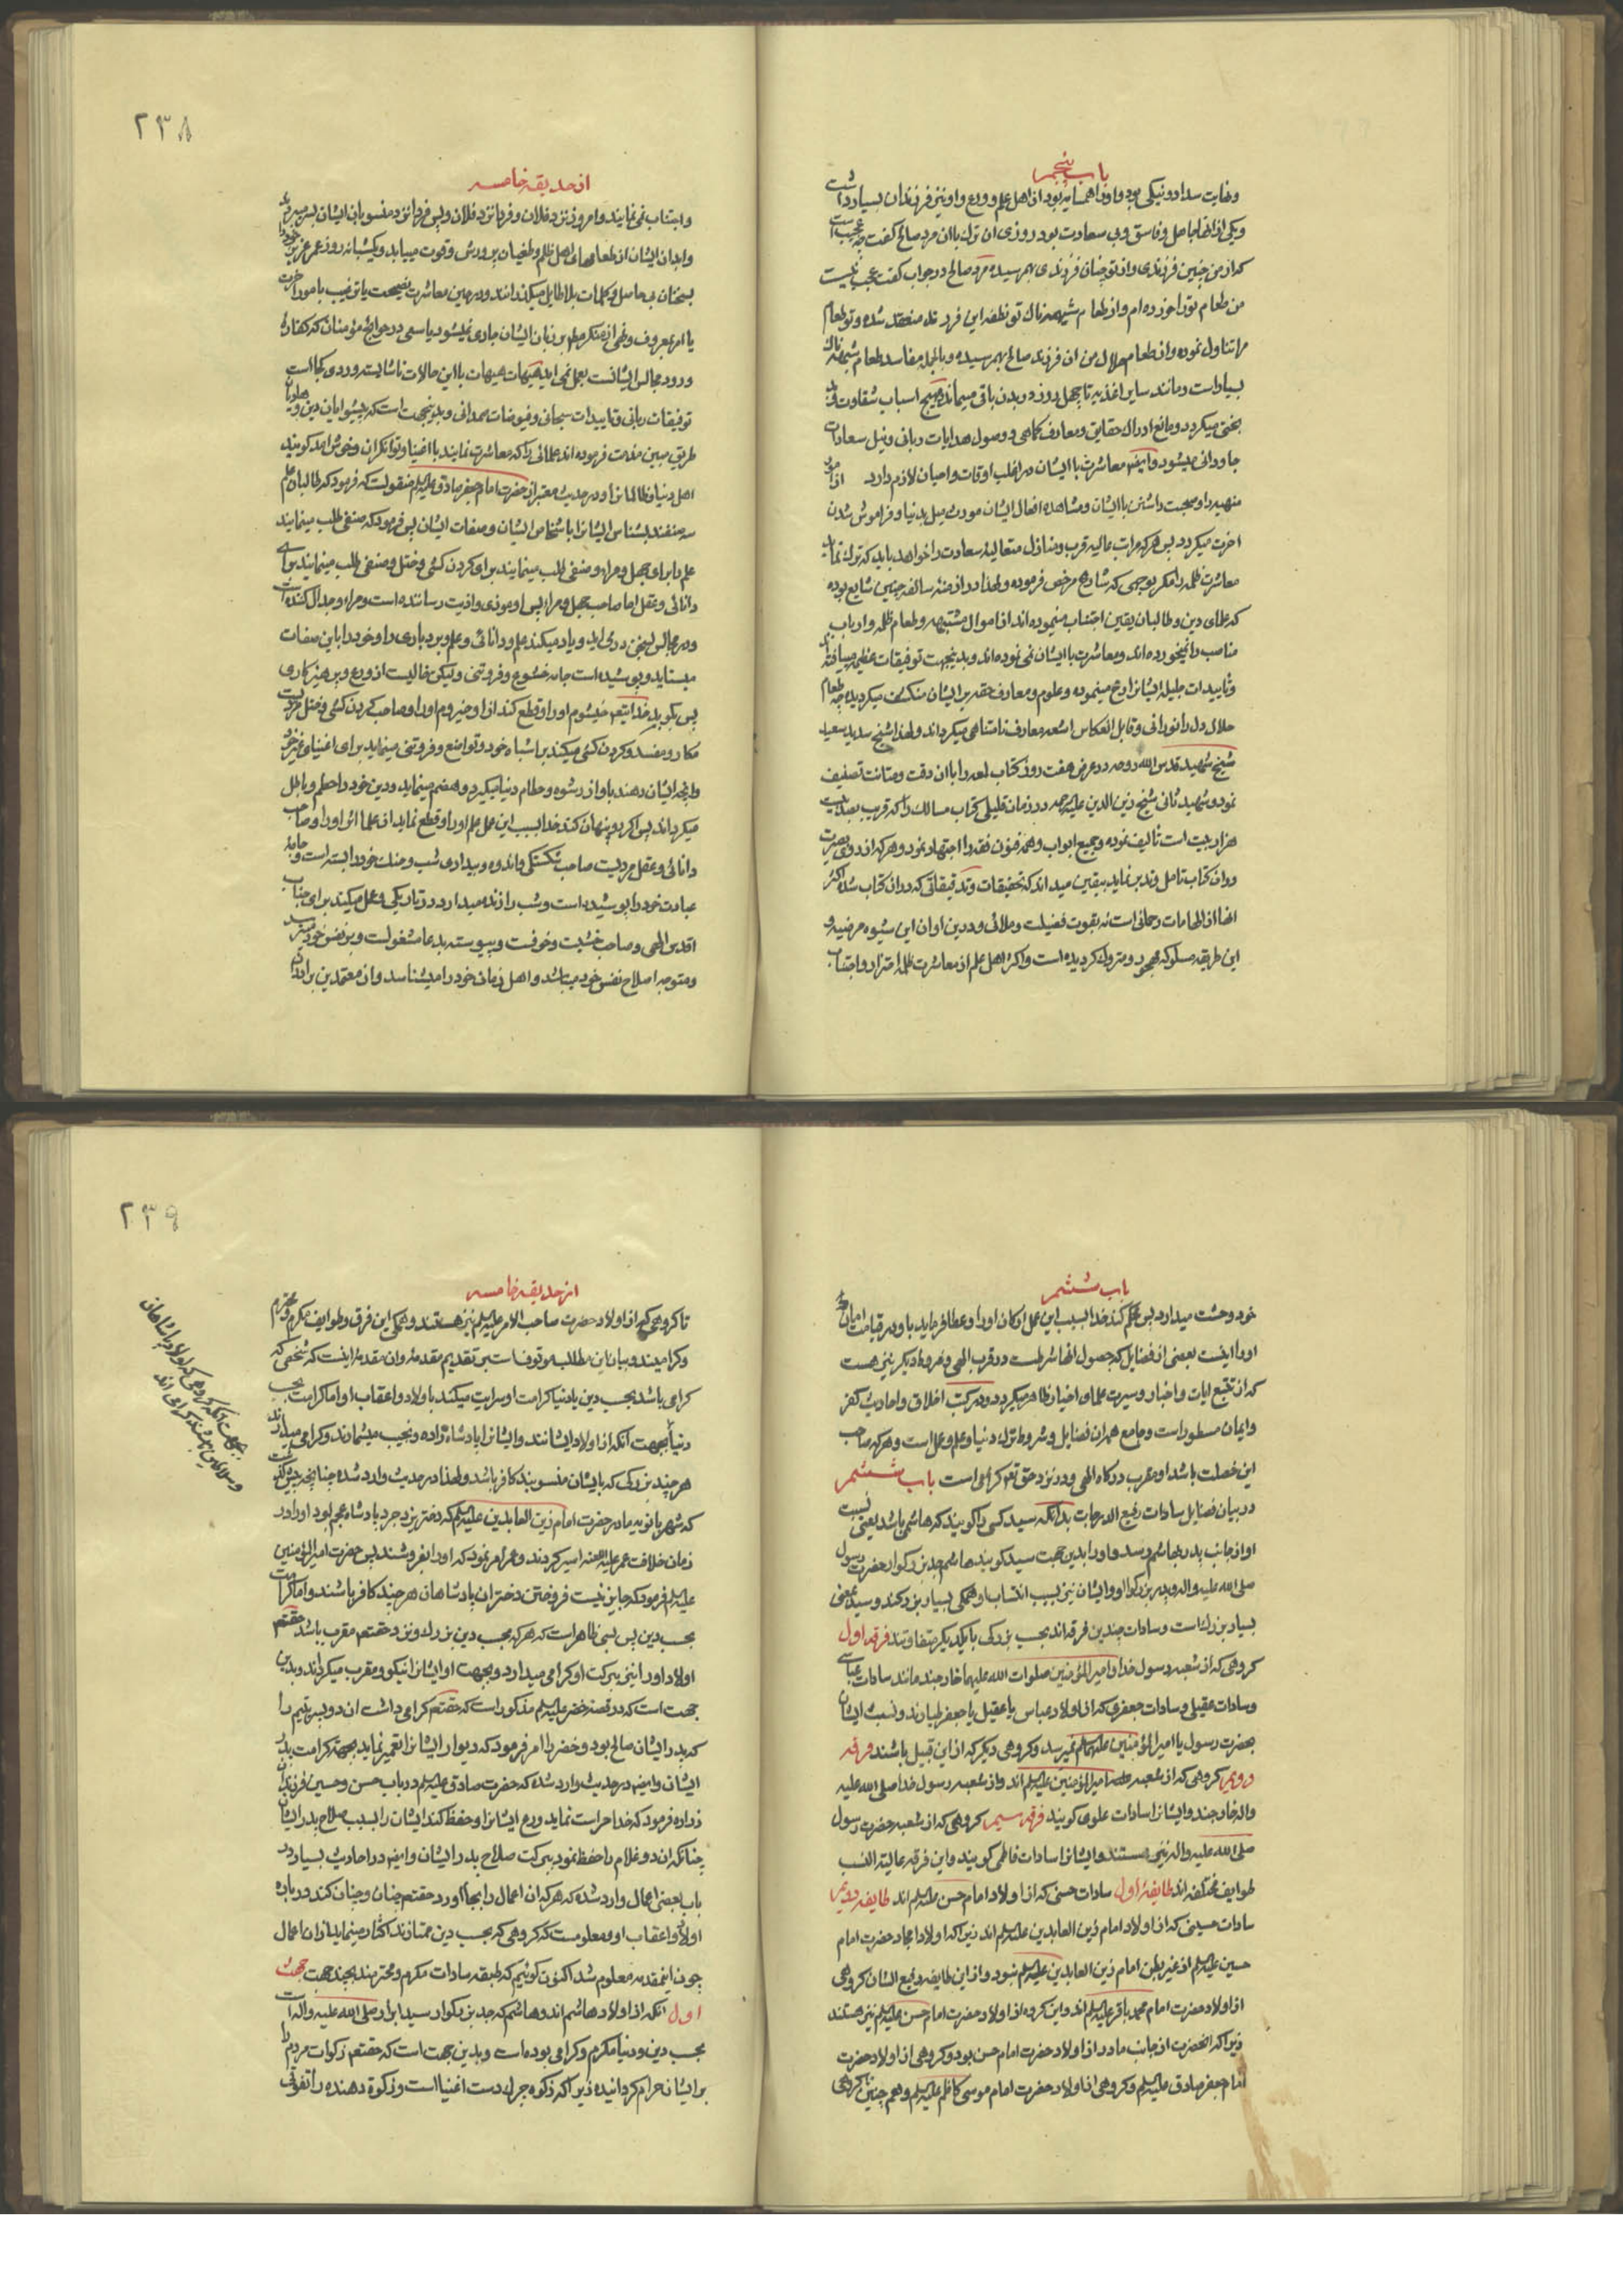 باب پنجم
وغایت سداد و نیکی بود و او را همسایه بود از اهل علم و ورع و او نیز فرزندان بسیار داشت
و یکی از انها جاهل و فاسق و بی سعادت بود روزی ان ترك باان مرد صالح کفت چه عجیب است
که از من چنین فرزندی و از تو چنان فرزندی بهم رسیده مرد صالح در جواب کفت عجب نیست
من طعام تو را خورده ام و از طعام شبهه ناك تو نطفه این فرزند منعقد شده و تو طعام
مرا تناول نموده و از طعام حلال من ان فرزند صالح بهم رسیده و بالجمله مفاسد طعام شبهه ناك
بسیار است و مانند سایر اغذیه تا چهل روز در بدن باقی میماند و مهیج اسباب شقاوت و بد
بختی میکردد و مانع ادراك حقایق و معارف کماهی و وصول هدایات ربانی و نیل سعادات
جاودانی میشود و ایضا معاشرت با ایشان در اغلب اوقات و احیان لازم دارد از امور
منهیه را و محبت داشتن با ایشان و مشاهده افعال ایشان مورث میل بدنیا و فراموش شدن
اخرت میکردد پس هر که مراتب عالیه قرب و منازل متعالیه سعادت را خواهد باید که ترك نماید
معاشرت ظلمه را مکر بوجهی که شارع مرخص فرموده و لهذا در ازمنه سالفه چنین شایع بوده
که علمای دین و طالبان یقین اجتناب مینموده اند از اموال مشتبهه و طعام ظلمه و ارباب
مناصب را نمیخورده اند و معاشرت با ایشان نمی نموده اند و بدینجهت توفیقات عظیمه مییافته اند
و تاییدات جلیله ایشانرا رخ مینموده و علوم و معارف حقه بر ایشان منکشف میکردیده چه طعام
حلال دل را نورانی و قابل انعکاس اشعه معارف نامتناهی میکرداند و لهذا شیخ سدید سعید
شیخ شهید قدس الله روحه در عرض هفت روز کتاب لمعه را باان دقت و متانت تصنیف
نمود و شهید ثانی شیخ زین الدین علیه الرحمه در زمان قلیلی کتاب مسالك را که قریب بصد بیست
هزار بیت است تالیف نموده و جمیع ابواب و همه فنون فقه را اجتهاد نمود و هر که از روی بصیرت
در ان کتاب تامل و تدبر نماید بیقین میداند که تحقیقات و تدقیقاتی که در ان کتاب شده اکثر
انها از الهامات رحمانی است نه بقوت فضیلت و ملائی و در این اوان این شیوه مرضیه و
این طریقه مسلوکه مهجور و متروك کردیده است و اکثر اهل علم از معاشرت ظلمه احتراز و اجتناب
۲۳۸
از حدیقه خامسه
و اجتناب نمی نمایند و امروز نزد فلان و فردا نزد فلان و پس فردا نزد منسوبان ایشان بسر میبرند
و ابدان ایشان از طعامهای اهل ظلم و طغیان پرورش و قوت مییابد و یکشبانه روز عمر عزیز خود را
بسخنان بی حاصل و کلمات بلاطایل میکذرانند و در حین معاشرت نصیحت یا ترغیب بامور اخرت
یا امر بمعروف و نهی از منکر مطلقا بر زبان ایشان جاری نمیشود یا سعی در حوائج مؤمنان که کفاره
ورود مجالس ایشانست بعمل نمی اید هیهات هیهات با این حالات ناشایسته ورودی کجا است
توفیقات ربانی و تاییدات سبحانی و فیوضات صمدانی و بدینجهت است که پیشوایان دین و هادیان
طریق مبین مذمت فرموده اند علمائی را که معاشرت نمایند با اغنیا و توانکران و خوش امد کویند
اهل دنیا و ظالمانرا و در حدیث معتبر از حضرت امام جعفر صادق علیه السلم منقولست که فرمود که طالبان علم
سه صنفند بشناس ایشانرا باشخاص ایشان و صفات ایشان پس فرمود که صنفی طلب مینمایند
علم را برای جهل و مراء و صنفی طلب مینمایند برای کردن کشی و ختل و صنفی طلب مینمایند برای
دانائی و عقل اما صاحب جهل و مراء پس او موذی و اذیت رساننده است و مراء و جدال کننده است
و در مجالس بسخن در می اید و یاد میکند علم و دانائی و علم و بردباری را و خود را باین صفات
میستاید و پوشیده است جامه خشوع و فروتنی و لیکن خالیست از ورع و پرهیزکاری
پس بکوبد خدا ایتعه خیشوم او را و قطع کند از او حیزوم او را و صاحب کردن کشی و ختل مردیست
مکار و مفسد و کردن کشی میکند بر اشباه خود و تواضع و فروتنی مینماید برای اغنیای غیر خود
و انچه ایشان دهند باو از رشوه و حطام دنیا میکیرد و هضم مینماید و دین خود را حطم و باطل
میکرداند پس کور و پنهان کند خدا بسبب این عمل علم او را و قطع نماید از علما اثر او را و صاحب
دانائی و عقل مردیست صاحب شکستکی و اندوه و بیداری شب و حنك خود را بسته است و جامه
عبادت خود را پوشیده است و شب را زنده میدارد در تاریکی و عمل میکند برای جناب
اقدس الهی و صاحب خشیت و خوفست و پیوسته بدعا مشغولست و بر نفس خود میترسد
و متوجه اصلاح نفس خود میباشد و اهل زمان خود را میشناسد و از معتمدین برادران
باب ششم
خود وحشت میدارد پس محکم کند خدا بسبب این عمل ارکان او را و عطا فرماید باو در قیامت امان
او را اینست بعضی از فضایل که حصول انها شرطست در قرب الهی و شروط دیکر نیز هست
که از تتبع ایات و اخبار و سیرت علمای اخیار ظاهر میکردد و در کتب اخلاق و احادیث کفر
و ایمان مسطور است و جامع همه ان فضایل و شروط ترك دنیا و علم و عمل است و هر که صاحب
این خصلت باشد او مقرب درکاه الهی و در نزد حق تعه کرامی است باب ششم
در بیان فضایل سادات رفیع الدرجات بدانکه سید کسی را کویند که هاشمی باشد یعنی نسب
او از جانب پدر بهاشم رسد و او را بدین جهت سید کویند هاشم جد بزرکوار حضرت رسول
صلی الله علیه و اله و پدر بزرکوار او و ایشان نیز بسبب انتساب باو همکی بسیار بزرکند و سید بمعنی
بسیار بزرك است و سادات چندین فرقه اند بحسب بزرکی با یکدیکر متفاوتند فرقه اول
کروهی که از شعبه رسول خدا و امیر المؤمنین صلوات الله علیهما خارجند مانند سادات عباسی
و سادات عقیلی و سادات جعفری که از اولاد عباس یا عقیل یا جعفر طیارند و نسب ایشان
بحضرت رسول یا امیر المؤمنین علیهما السلم نمیرسد و کروهی دیکر که از این قبیل باشند فرقه
دویم کروهی که از شعبه امیر المؤمنین علیه السلم اند و از شعبه رسول خدا صلی الله علیه
واله خارجند و ایشانرا سادات علوی کویند فرقه سیم کروهی که از شعبه حضرت رسول
صلی الله علیه واله نیز هستند و ایشانرا سادات فاطمی کویند و این فرقه عالیة النسب
طوایف مختلفه اند طایفه اول سادات حسنی که از اولاد امام حسن علیه السلم اند طایفه دویم
سادات حسینی که از اولاد امام زین العابدین علیه السلم اند زیرا که اولاد امجاد حضرت امام
حسین علیه السلم از غیر بطن امام زین العابدین علیه السلم نبود و از این طایفه رفیع الشان کروهی
از اولاد حضرت امام محمد باقر علیه السلم اند و این کروه از اولاد حضرت امام حسن علیه السلم نیز هستند
زیرا که انحضرت از جانب مادر از اولاد حضرت امام حسن بود و کروهی از اولاد حضرت
امام جعفر صادق علیه السلم و کروهی از اولاد حضرت امام موسی کاظم علیه السلم و همچنین کروهی
۲۳۹
از حدیقه خامسه
تا کروهی که از اولاد حضرت صاحب الامر علیه السلم نیز هستند و همکی این فرق و طوایف مکرم و محترم
و کرامیند و بیان این مطلب موقوفست بر تقدیم مقدمه و ان مقدمه اینست که شخصی که
کرامی باشد بحسب دین یا دنیا کرامت او سرایت میکند باولاد و اعقاب او اما کرامت بحسب
دنیا بجهت انکه از اولاد ایشانند و ایشانرا پادشاه زاده و نجیب میشمارند و کرامی میدارند
هر چند بزرکی که بایشان منسوبند کافر باشد و لهذا در حدیث وارد شده چنانچه پیش کذشت
که شهربانویه مادر حضرت امام زین العابدین علیه السلم که دختر یزدجرد پادشاه عجم بود او را در
زمان خلافت عمر علیه اللعنه اسیر کردند و عمر امر نمود که او را بفروشند پس حضرت امیر المؤمنین
علیه السلم فرمود که جایز نیست فروختن دختران پادشاهان هر چند کافر باشند و اما کرامت
بحسب دین پس بسی ظاهر است که هر که بحسب دین بزرك و نزد حقتعه مقرب باشد حقتعم
اولاد او را نیز ببرکت او کرامی میدارد و بجهت او ایشانرا نیکو و مقرب میکرداند و بدین
جهت است که در قصه خضر علیه السلم مذکور است که حقتعم کرامی داشت ان دو پسر یتیم را
که پدر ایشان صالح بود و خضر را امر فرمود که دیوار ایشانرا تعمیر نماید بجهة کرامت پدر
ایشان و ایضا در حدیث وارد شده که حضرت صادق علیه السلم در باب حسن و حسین فرزندان
زراره فرمود که خدا حراست نماید و رعایت ایشانرا و حفظ کند ایشان را بسبب صلاح پدر ایشان
چنانکه ان دو غلام را حفظ نمود ببرکت صلاح پدر ایشان و ایضا در احادیث بسیار در
باب بعضی اعمال وارد شده که هر که ان اعمال را بجا اورد حقتعم چنان و چنان کند در باره
اولاد و اعقاب او و معلومست که کروهی که بحسب دین ممتازند اکثار مینمایند از ان اعمال
چون اینمقدمه معلوم شد اکنون کوئیم که طبقه سادات مکرم و محترمند بچند جهت جهت
اول انکه از اولاد هاشم اند و هاشم که جد بزرکوار سید ابرار صلی الله علیه واله است
بحسب دین و دنیا مکرم و کرامی بوده است و بدین جهت است که حقتعم زکوات مردم را
بر ایشان حرام کردانیده زیرا که زکوة چرك دست اغنیا است و زکوة دهنده را تفوقی